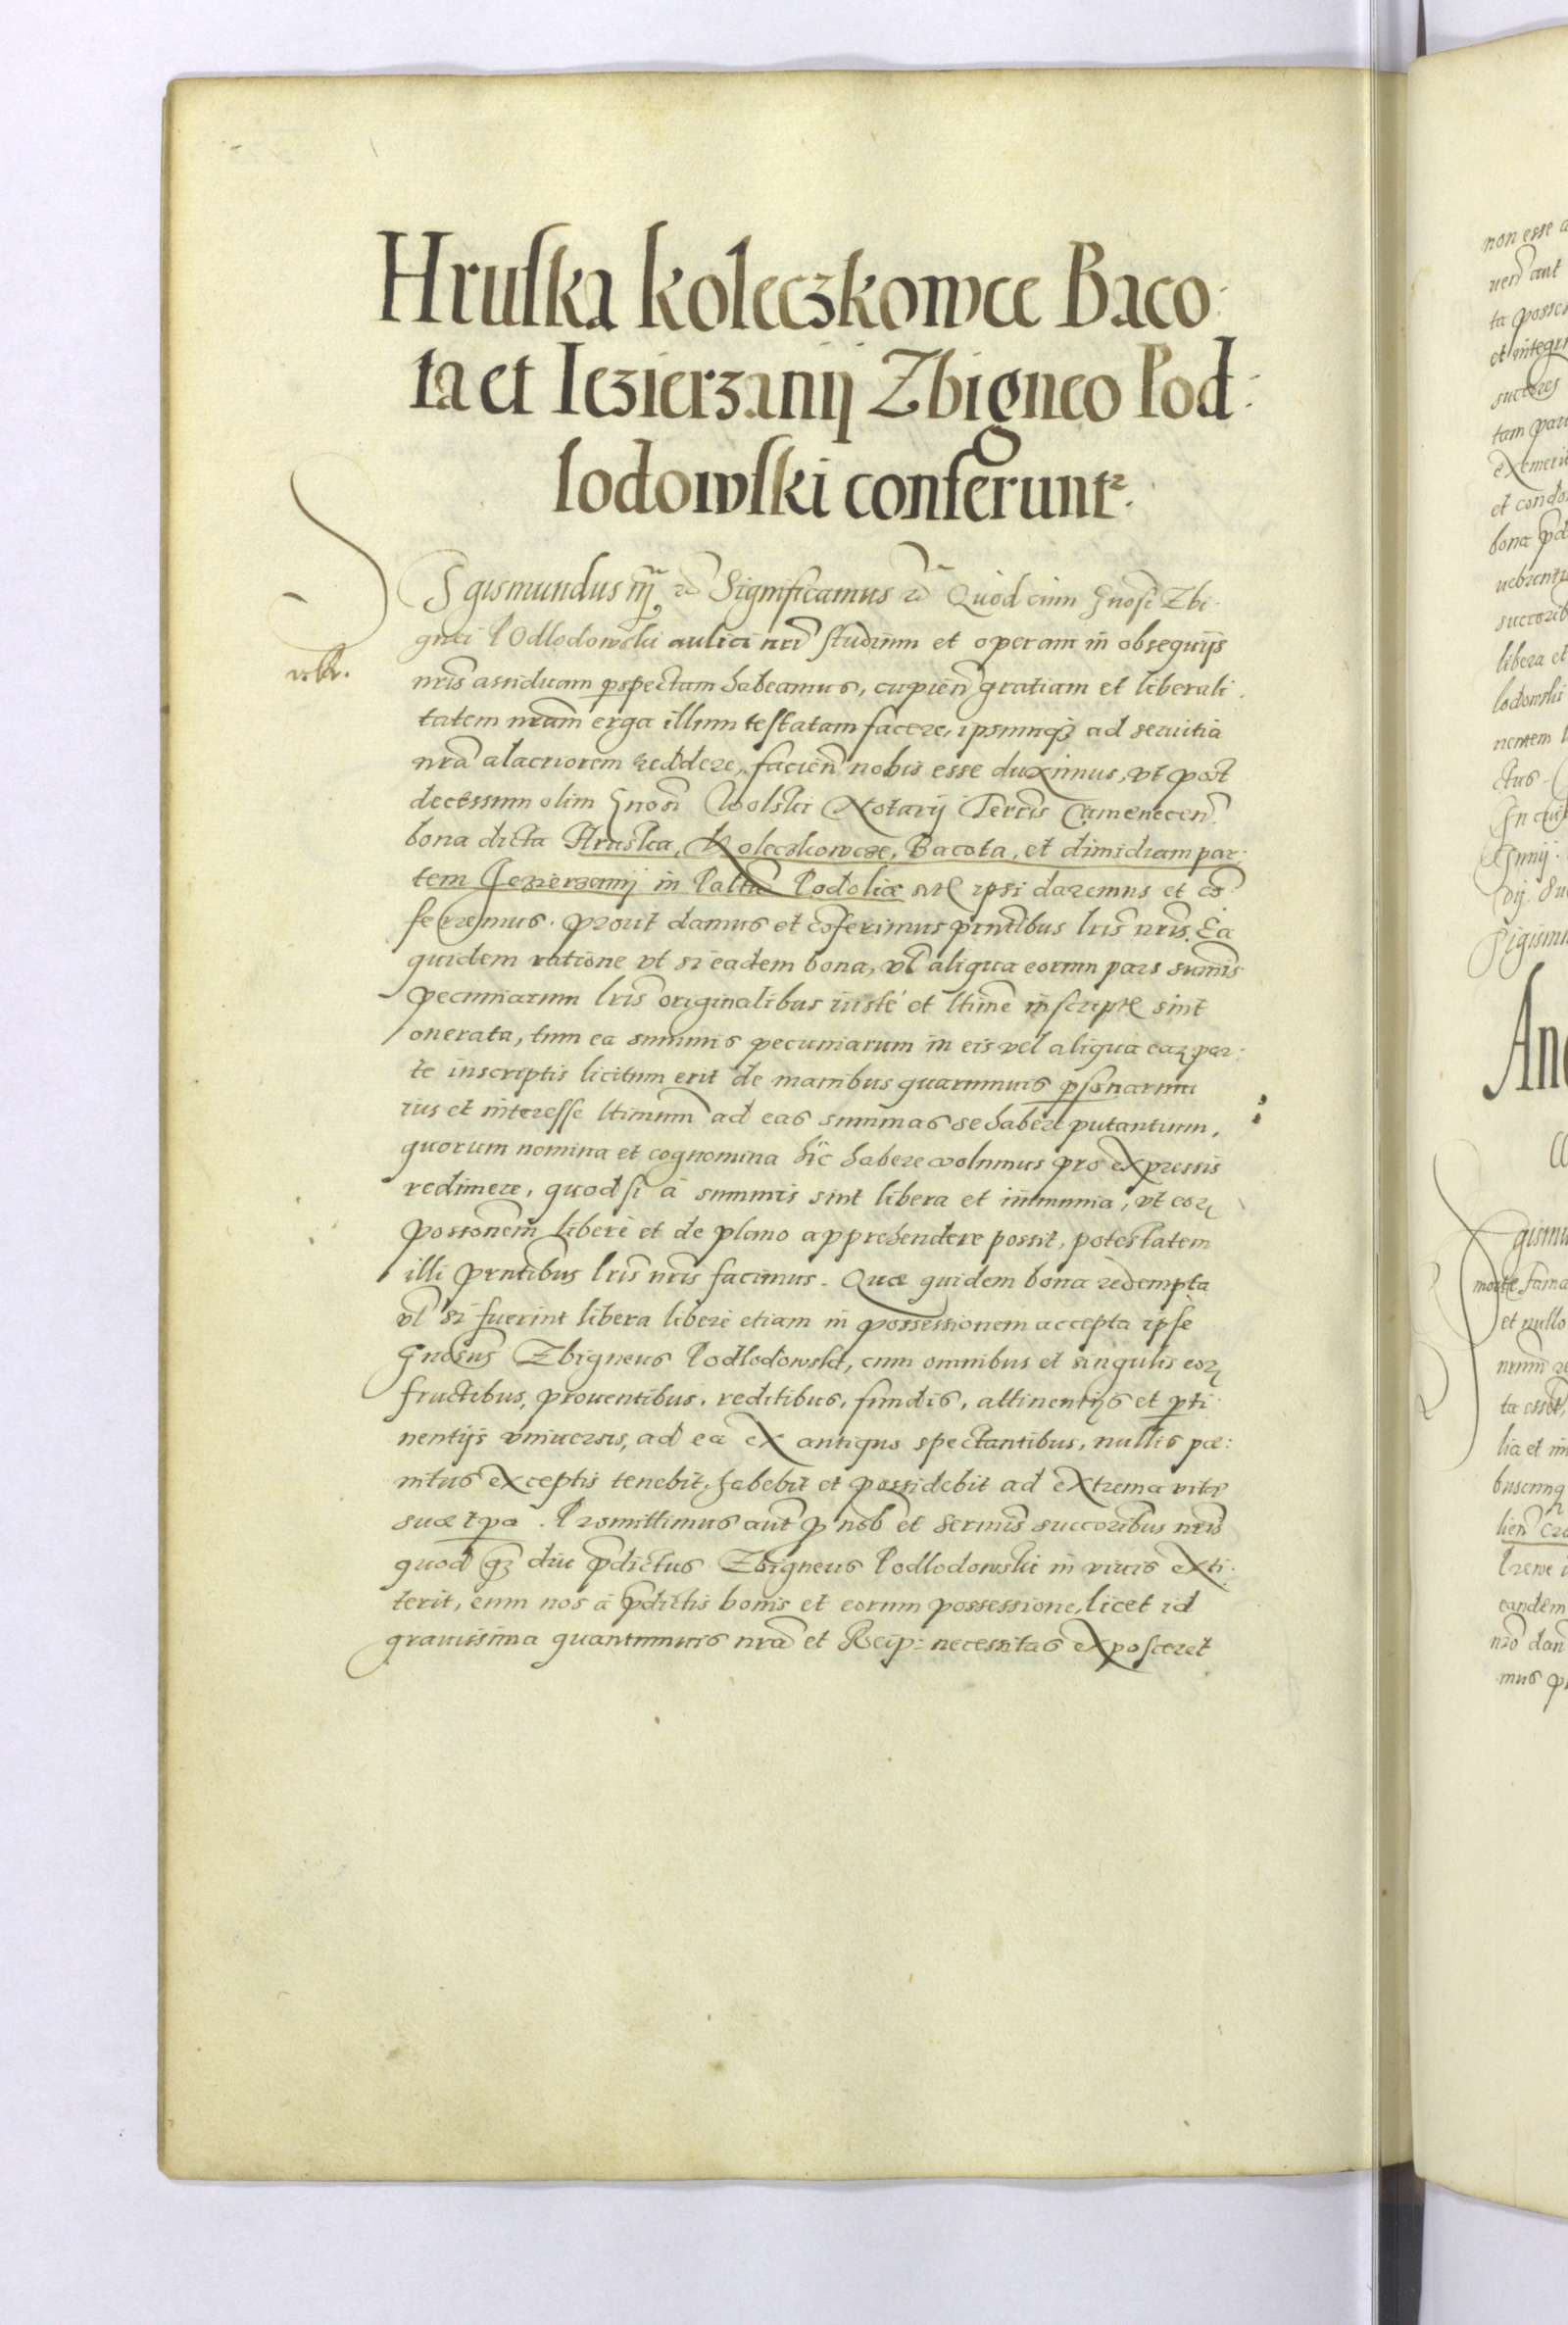 Hruska Koleczkowce Baco:
ta et Iezierzanij Zbigneo Pod:
lodowski conferunt.
Sigismundus Significamus Quod cum Gnosi Zbi-
gnei Podlodowski aulici nri studium et operam in obsequijs
nris assiduam pspectam habeamus, cupien gratiam et liberali-
tatem nram erga illum testatam facere, ipsumq ad servitia
nra alacriorem reddere, facien nobis esse duximus, vt post
decessum olim Gnosi Wolski Notarij Terris Camenecen
bona dicta Hruska, Koleczkowcze, Bacota, et dimidiam par-
tem Jezierzanij in Paltu Podoliæ ipsi daremus et co-
ferremus. Prout damus et coferimus pntibus lris nris. Ea
quidem ratione vt si eadem bona, vl aliqua eorum pars sumis
pecuniarum lris originalibus iuste et ltime inscript sint
onerata, tum ea summis pecuniarum in eis vel aliqua ear par-
te inscriptis licitum erit de manibus quarumuis psonarum
ius et interesse ltimum ad eas summas se habere putantium,
quorum nomina et cognomina hic habere volumus pro expressis
redimere, quod si à summis sint libera et immunia, vt eor
possonem liberè et de plano apprehendere possit, potestatem
illi pntibus lris nris facimus. Quæ quidem bona redempta
vl si fuerint libera liberè etiam in possessionem accepta ipse
Gnosus Zbigneus Podlodowski, cum omnibus et singulis eor
fructibus, prouentibus, reditibus, fundis, attinentijs et pti-
nentijs vniuersis, ad ea ex antiquo spectantibus, nullis pæ-
nitus exceptis tenebit, habebit et possidebit ad extrema vitæ
suæ tpa. Promittimus aut p nob et sermis succoribus nris
quod q diu pdictus Zbigneus Podlodowski in viuis exti-
terit, eum nos à pdictis bonis et eorum possessione, licet id
grauissima quantumuis nra et Reip: necessitas exposceret
non esse
ta posse
et integr
tam par
exemeri
et condo
bona pd
libera et
lodowski
Ang
gismu
et nullo
lia et
eandem